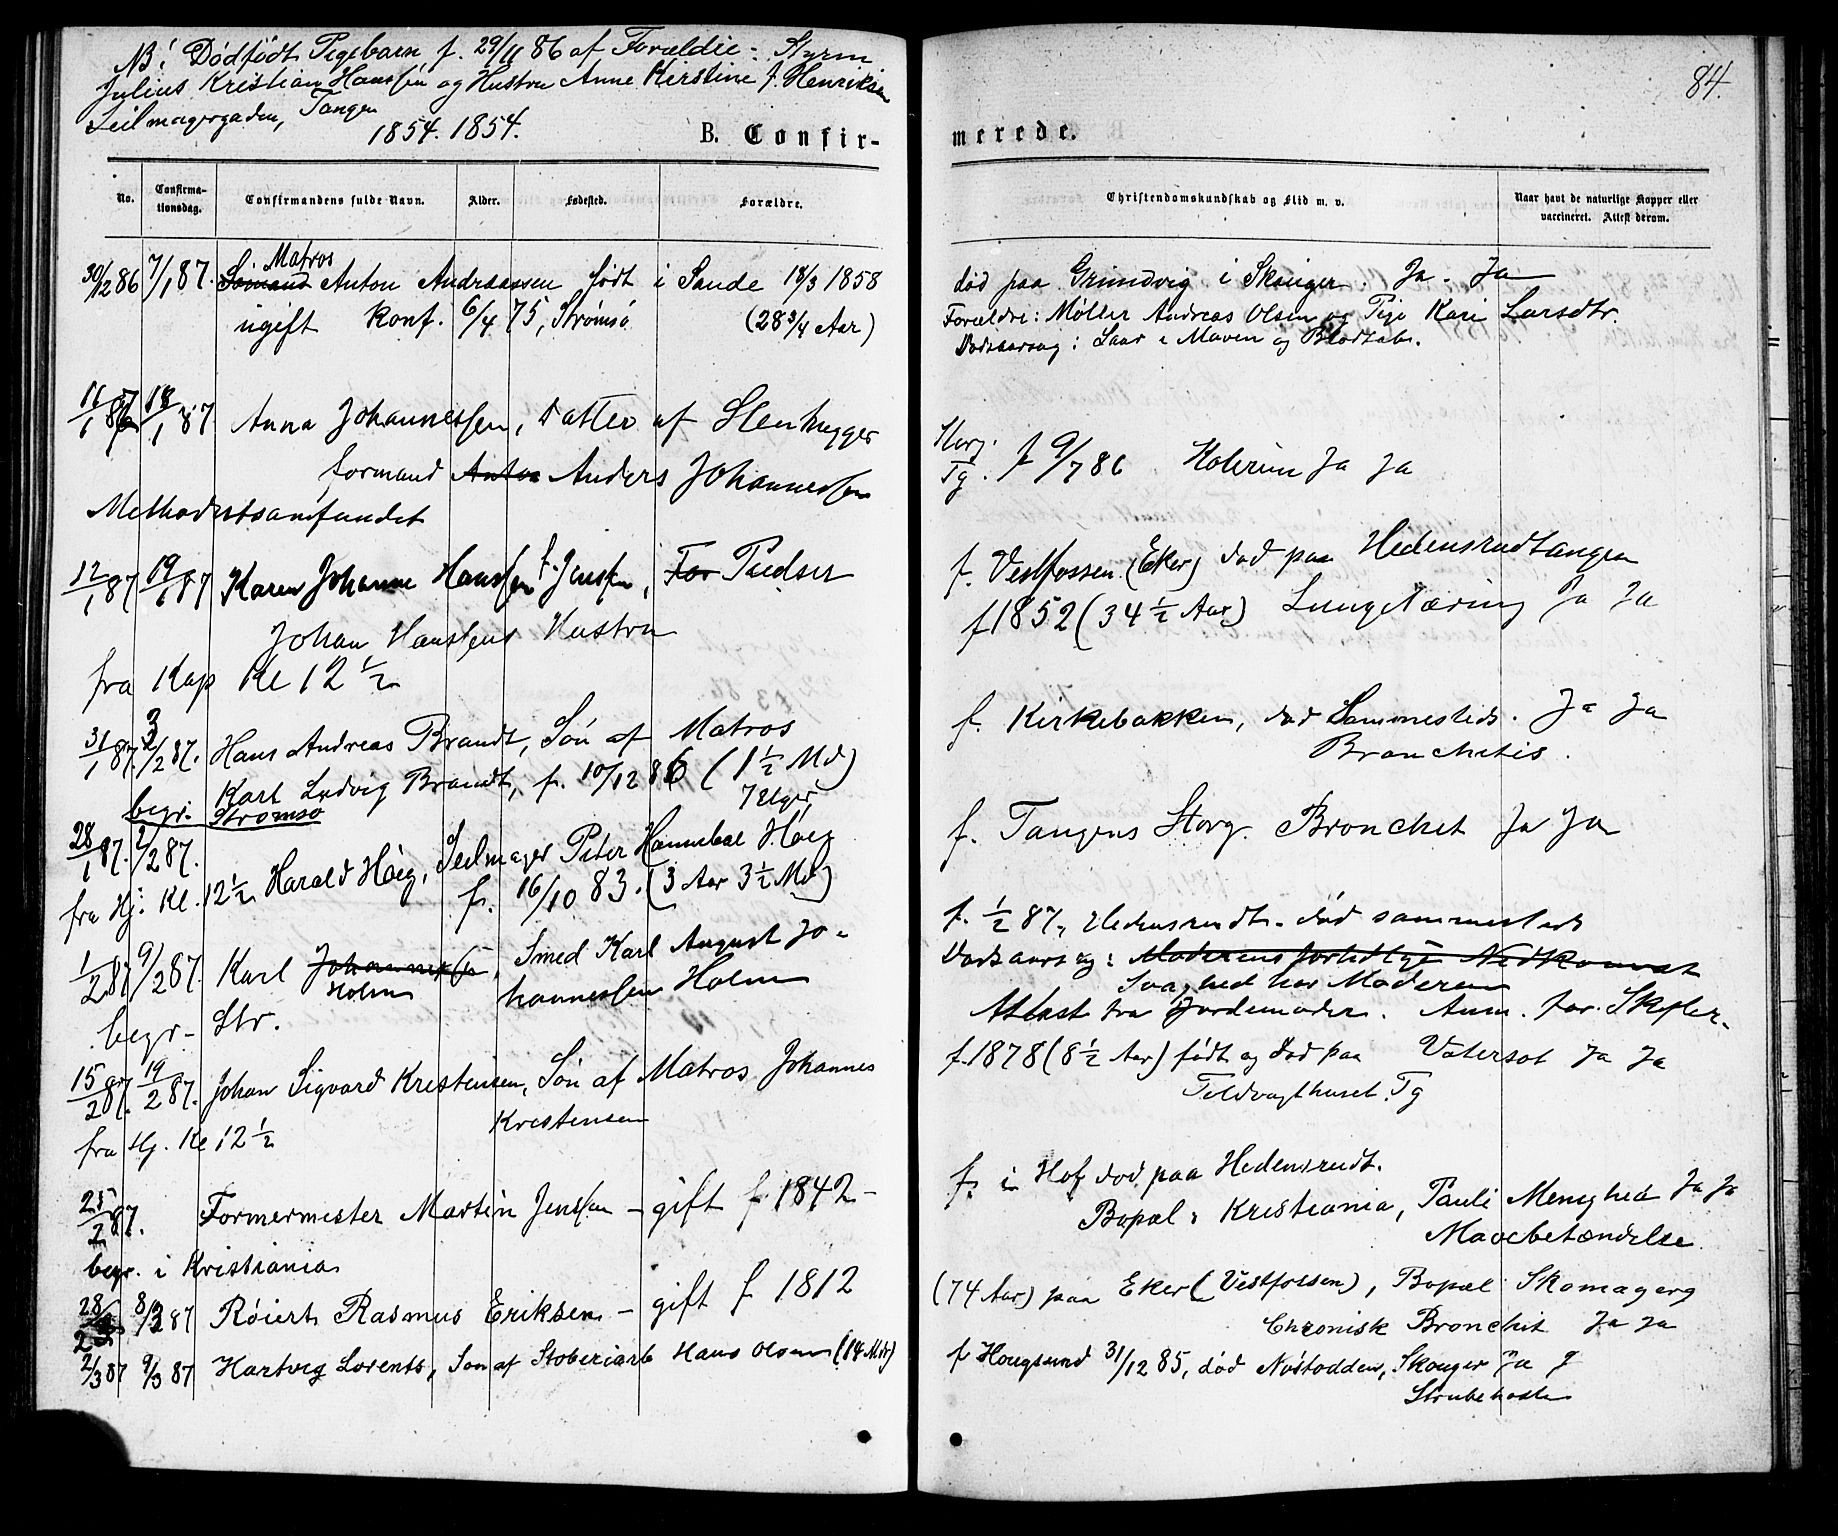 NB! Dødfødt Pigebarn, f. 29/11 86 af Forældre: Styrm
Julius Kristian Hanssen og Hustru Anne Kirstine f. Henriksen
Seilmagergaden, Tangen
1854. 1854.
B. Confir-
No.
Confirma-
tionsdag.
Confirmandens fulde Navn.
Alder.
Fødested.
Forældre.
Matros
30/12 86 7/1 87. Sømand Anton Andreassen født i Sande 18/3 1858
ugift Konf. 6/4 75, Strømsø (28 3/4 Aar)
11/1 87 18/1 87 Anna Johannessen, Datter af Stenhugger
formand Anton Anders Johannessen
Methodistsamfundet
12/1 87 19/1 87 Karen Johanne Hanssen f. Jensen, For Pudser
Johan Hanssens Hustru
fra Kap Kl 12 1/2
31/1 87. 3/2 87. Hans Andreas Brandt, Søn af Matros
Karl Ludvig Brandt, f. 10/12 86 (1 1/2 Md)
begr. Strømsø 7 Uger
28/1 87. 2/2 87.
fra Hj. Kl. 12 1/2 Harald Høeg, Seilmager Peter Hannibal Høeg
f. 16/10 83. (3 Aar 3 1/2 Md)
1/2 87 9/2 87. Karl Johannessen, Smed Karl August Jo-
Holm hannessen Holm
begr. Str.
15/2 87. 19/2 87. Johan Sigvard Kristensen, Søn af Matros Johannes
Kristensen
fra Hj. Kl 12 1/2
25/2 87. Formermester Martin Jenssen - gift f. 1842 -
begr. i Kristiania
28/2 8/3 87 Røiert Rasmus Eriksen - gift f 1812
2/3 87 9/3 87 Hartvig Lorents, Søn af Støberiarb Hans Olsen (14 Mdr)
84.
merede.
Christendomskundskab og Flid m. v.
Naar havt de naturlige Kopper eller
vaccineret. Attest derom.
død paa Grimdvig i Skouger. Ja. Ja
Forældre: Møller Andreas Olsen og Pige Kari Larsdtr.
Dødsaarsag: Saar i Maven og Blodtab.
Storg.
Tg. f 9/7 86 Kolerine Ja Ja
f. Vestfossen (Eker) død paa Hedensrudtangen
f 1852 (34 1/2 Aar) Lungetæring Ja Ja
f. Kirkebakken, død Sammesteds. Ja Ja
Bronchitis.
f. Tangens Storg. Bronchit Ja Ja
f. 1/2 87, Hedensrudt. død sammesteds
Dødsaarsag: Moderens fortidlige Nedkomst
Svaghed hos Moderen
Attest fra Jordemoder. Anm. for Skifter.
f. 1878 (8 1/2 Aar) født og død paa Vatersot Ja Ja
Toldvagthuset. Tg
f. i Hof død paa Hedensrudt.
Bopæl: Kristiania, Pauli Menighed Ja Ja
Mavebetændelse
(74 Aar) paa Eker (Vestfossen), Bopæl Skomagerg
Chronisk Bronchit Ja Ja
f Hougsund 31/12 85, død Nøstodden, Skouger Ja
Strubehoste